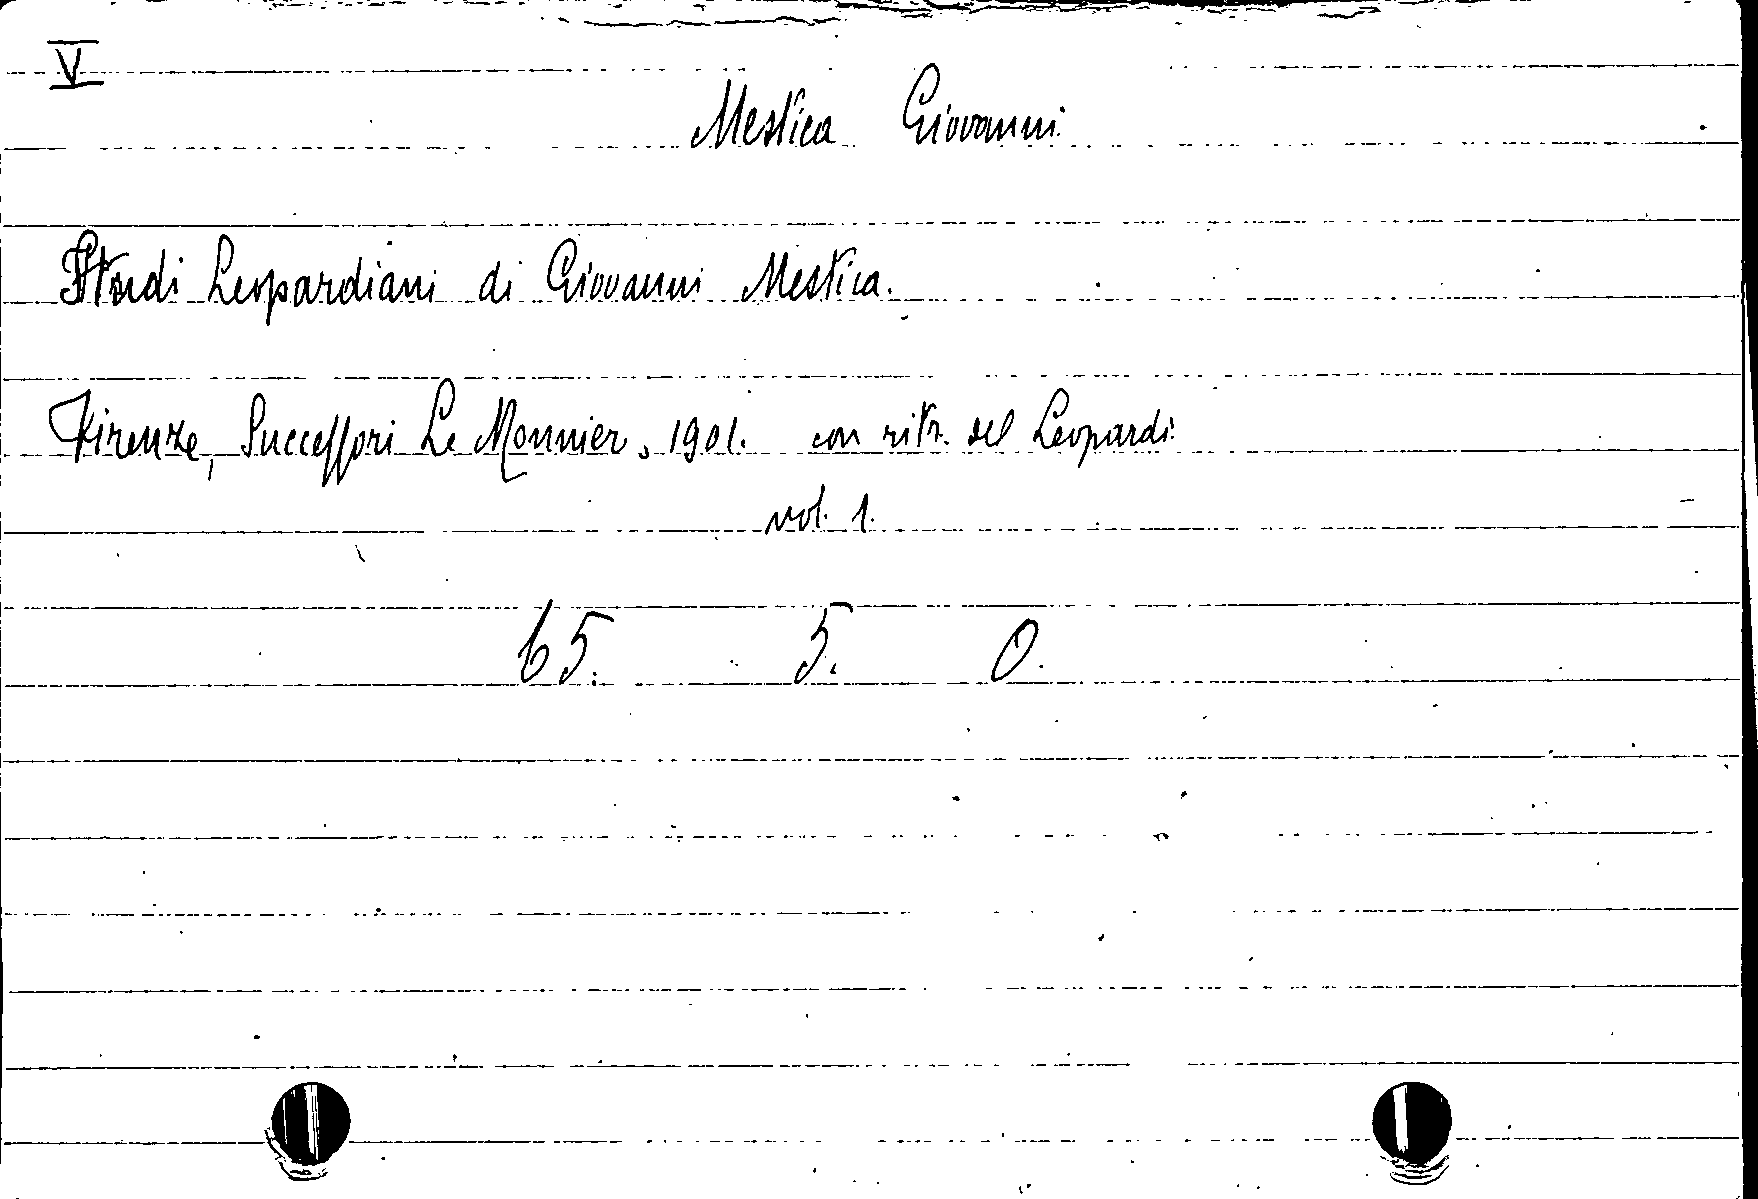 V
Mestica Giovanni
Studi Leopardiani di Giovanni Mestica.
Firenze, Successori Le Monnier, 1901. con ritr. del Leopardi
vol. 1.
65. 5. O.